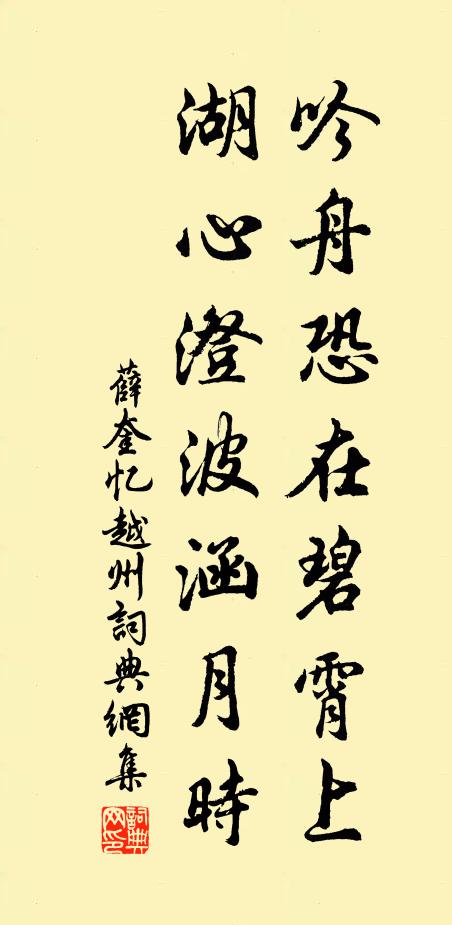 吟舟恐在碧霄上
湖心澄波涵月時
薛奎忆越州詞典網集
詞典
网印